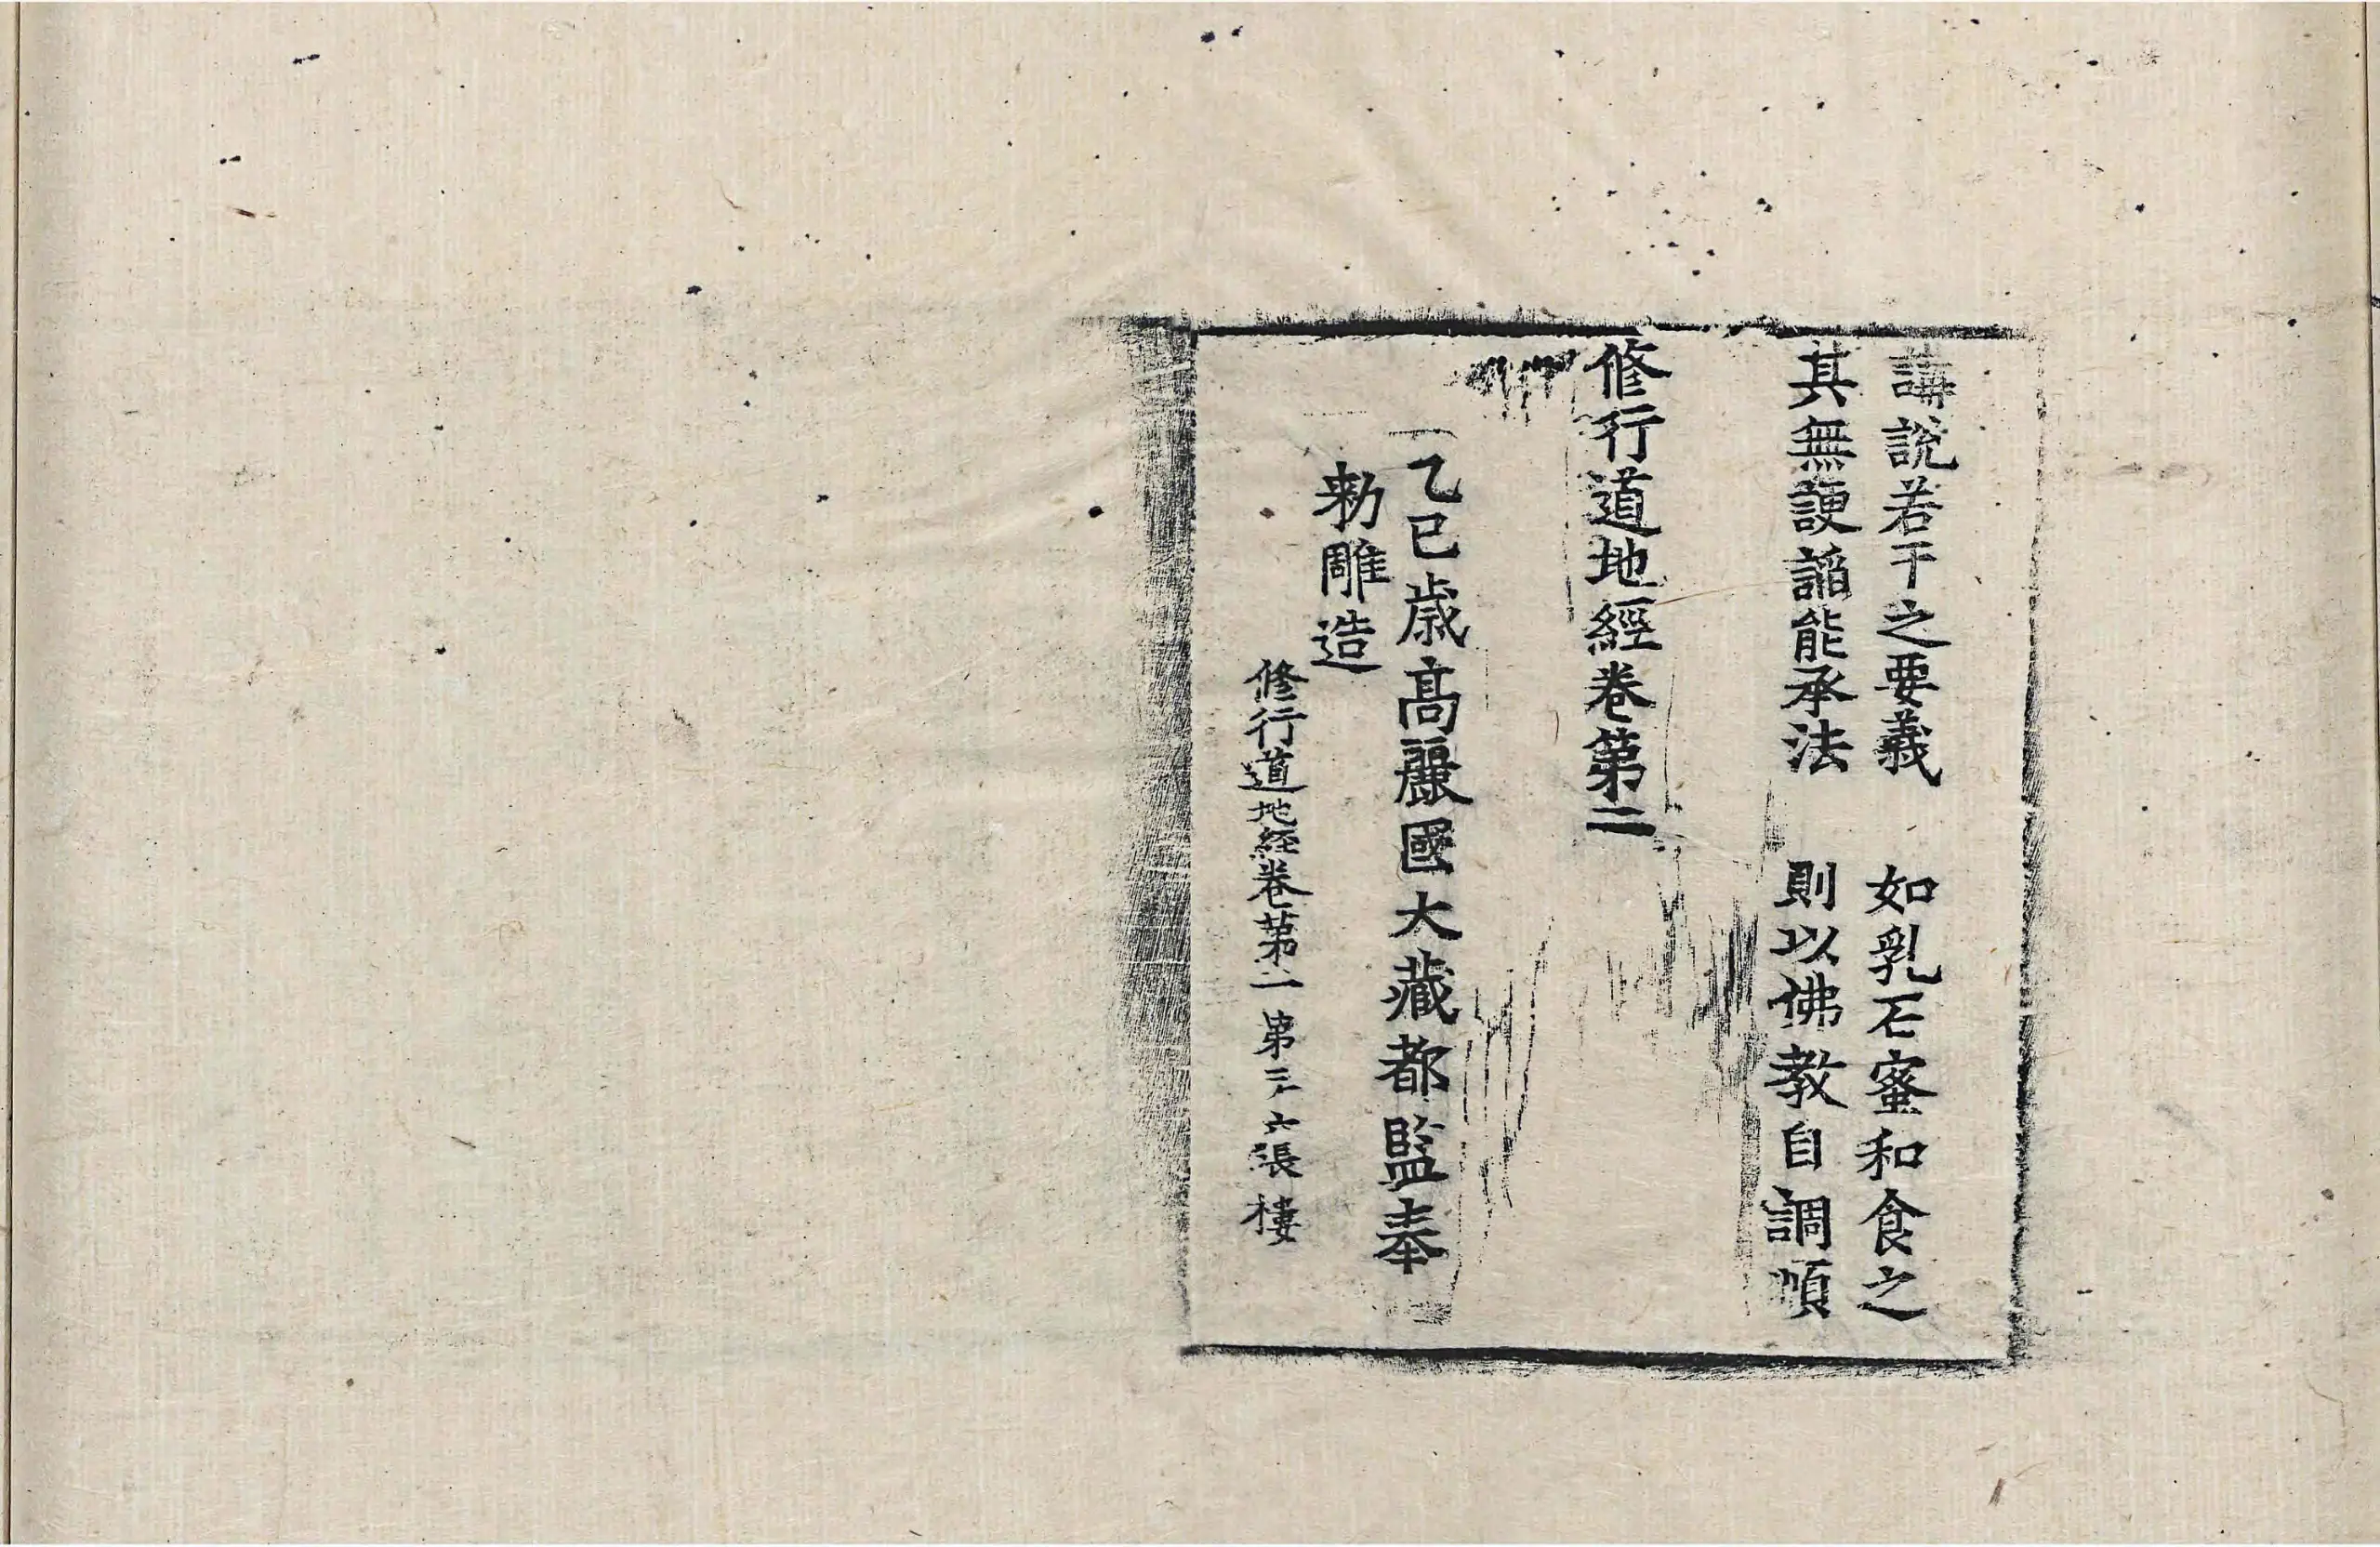 講說若干之要義　如乳石蜜和食之
其無諛諂能承法　則以佛教自調順
修行道地經卷第二
乙巳歲高麗國大藏都監奉
勑雕造
修行道地經卷第二　第三十六張　樓